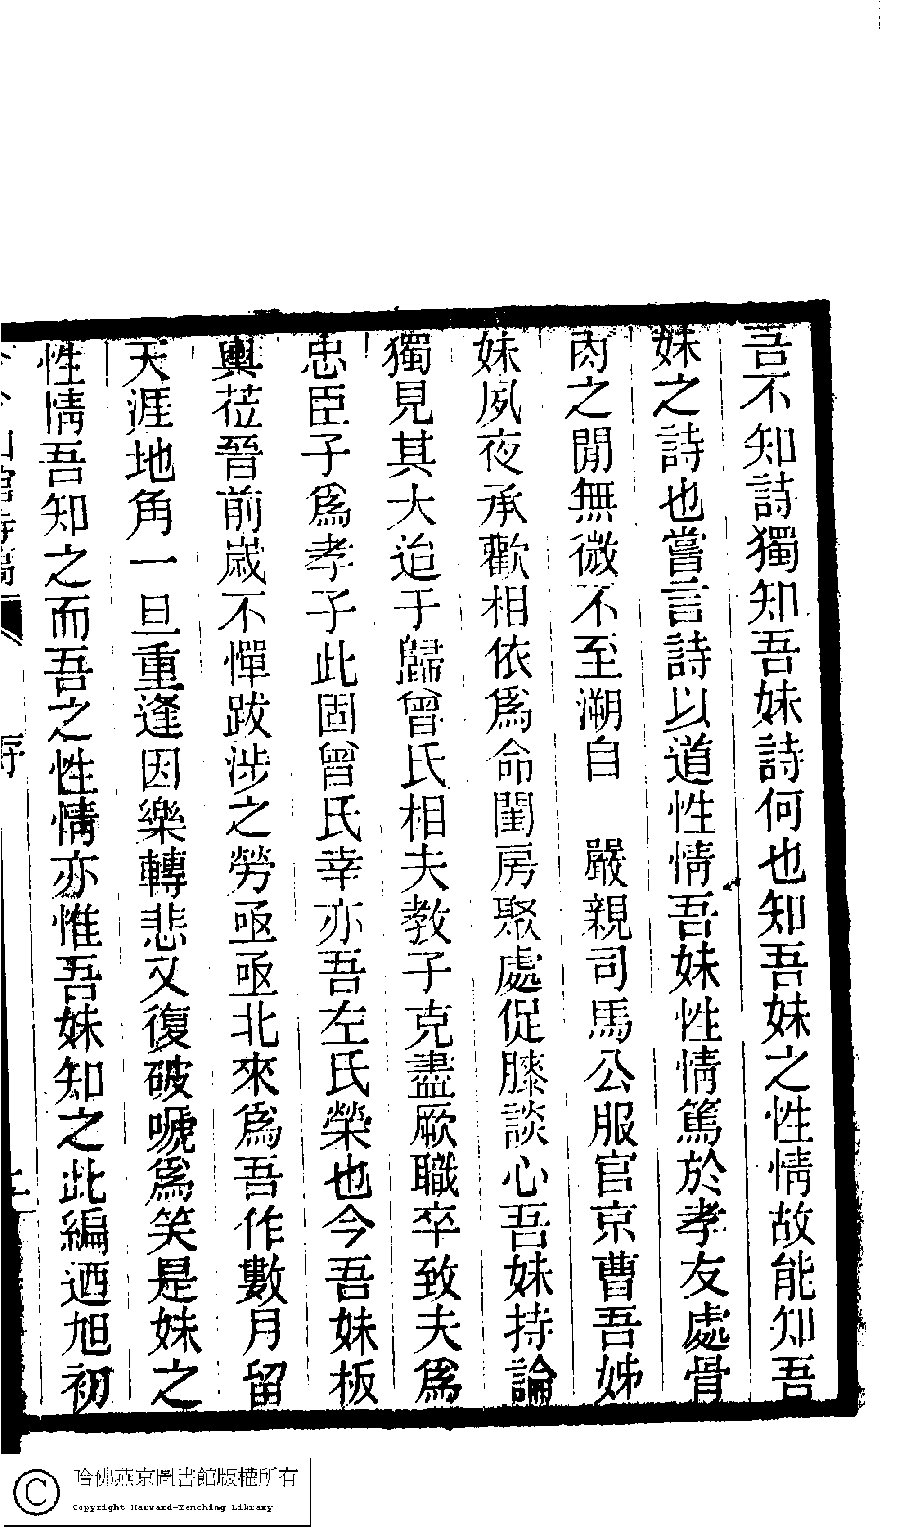 吾不知詩獨知吾妹詩何也知吾妹之性情故能知吾
妹之詩也嘗言詩以道性情吾妹性情篤於孝友處骨
肉之閒無微不至溯自　嚴親司馬公服官京曹吾姊
妹夙夜承歡相依爲命閨房聚處促膝談心吾妹持論
獨見其大迨于歸曾氏相夫教子克盡厥職卒致夫爲
忠臣子爲孝子此固曾氏幸亦吾左氏榮也今吾妹板
輿莅晉前嵗不憚跋涉之勞亟亟北來爲吾作數月留
天涯地角一旦重逢因樂轉悲又復破嗁爲笑是妹之
性情吾知之而吾之性情亦惟吾妹知之此編迺旭初
館詩稿
序
哈佛燕京圖書館版權所有
Copyright Harvard-Yenching Library